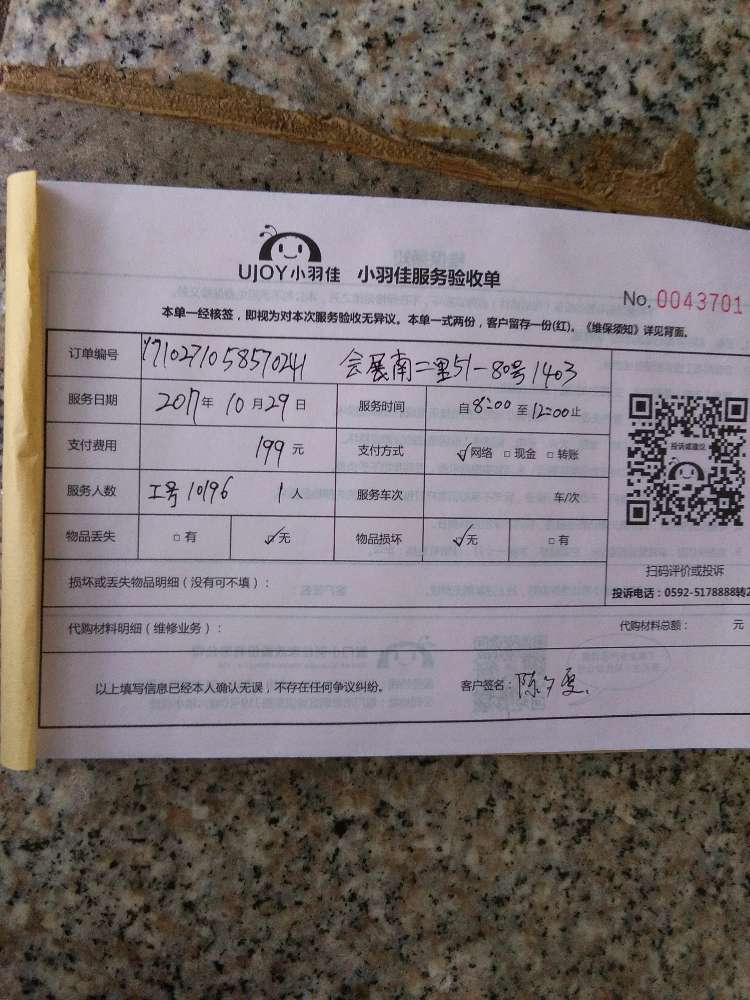 UJOY小羽佳 小羽佳服务验收单
No. 0043701
本单一经核签，即视为对本次服务验收无异议。本单一式两份，客户留存一份(红)。《维保须知》详见背面。
订单编号 1710271058570241 会展南二里51-80号1403
服务日期 2017年 10月29日 服务时间 自8:00至12:00止
支付费用 199元 支付方式 ☑网络 □现金 □转账
投诉或建议
服务人数 工号10196 1人 服务车次 车/次
物品丢失 □有 ☑无 物品损坏 ☑无 □有
扫码评价或投诉
投诉电话：0592-5178888转2
损坏或丢失物品明细（没有可不填）：
代购材料明细（维修业务）： 代购材料总额： 元
以上填写信息已经本人确认无误，不存在任何争议纠纷。 客户签名：陈